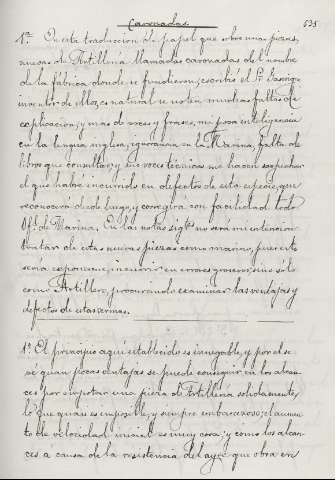 Caronadas.
635
1ª. En esta traduccion de papel que sobre unas piezas
nuevas de Artilleria llamadas caronadas del nombre
de la fábrica donde se fundieron, escribió el Sr.
inventor de ellas, es natural se noten muchas faltas de
explicacion, y mas de voces y frases, mi poca inteligencia
en la lengua inglesa, ignorancia en la Marina, falta de
libros que consultar, y sus voces técnicas me hacen sospechar
el que habré incurrido en defectos de esta especie, que
reconocerá desde luego, y corregirá con facilidad todo
Ofl. de Marina. En las notas sigtes no será mi intencion
tratar de estas nuevas piezas como marino, pues esto
seria exponerme, incurrir en errores groseros, sino solo
como Artillero, procurando examinar las ventajas y
defectos de estas armas.
1ª. El principio aqui establecido es innegable, y por el se
vé quan pocas ventajas se puede conseguir en los alcan-
ces por empotrar una pieza de Artilleria solidamente,
lo que quasi es imposible, y siempre embarazoso; el aumen-
to de velocidad inicial es muy corta, y como los alcan-
ces á causa de la resistencia del ayre que obra en